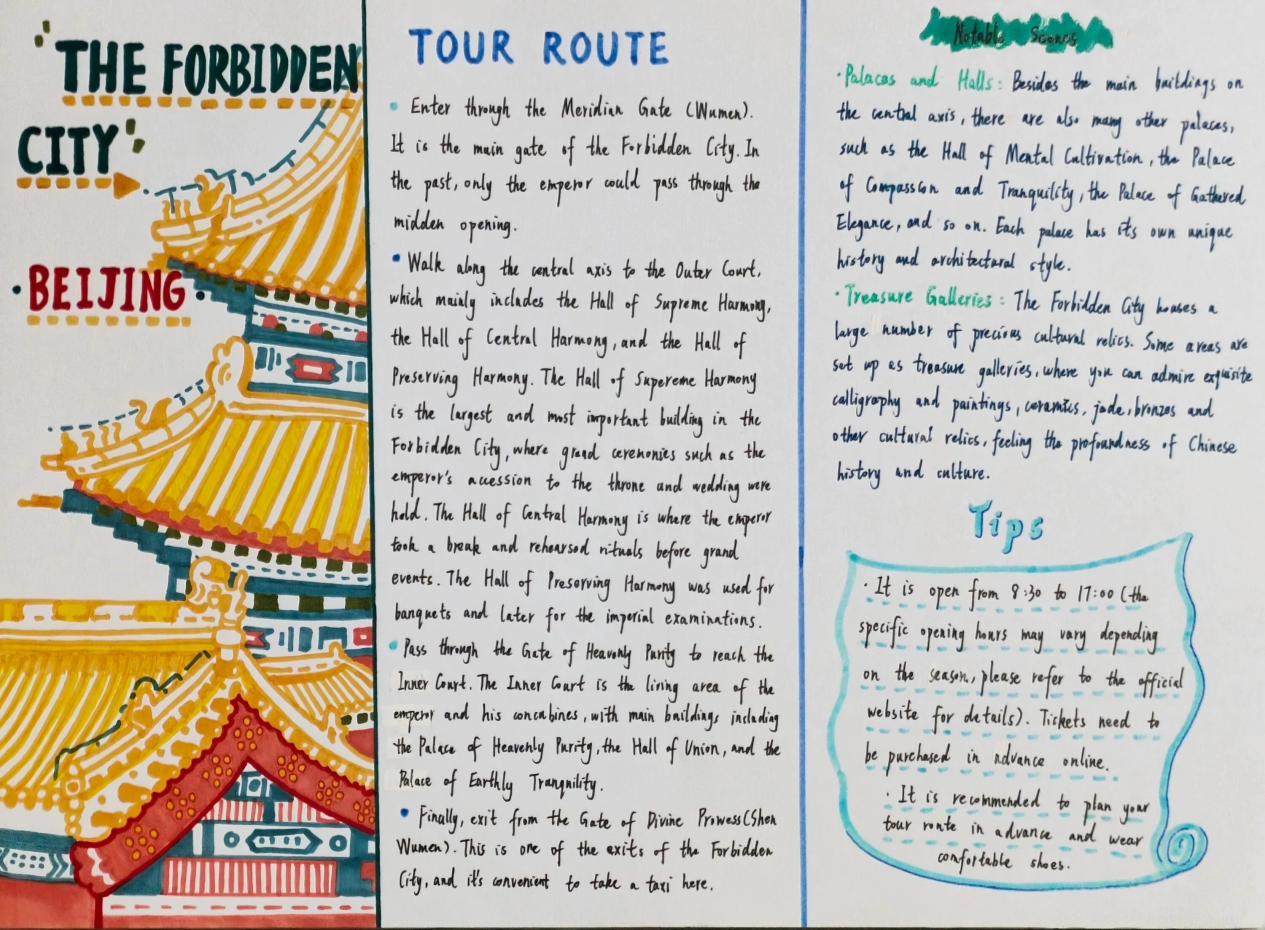 THE FORBIDDEN
CITY
BEIJING
TOUR ROUTE
• Enter through the Meridian Gate (Wumen).
It is the main gate of the Forbidden City. In
the past, only the emperor could pass through the
midden opening.
• Walk along the central axis to the Outer Court,
which mainly includes the Hall of Supreme Harmong,
the Hall of Central Harmony, and the Hall of
Preserving Harmony. The Hall of Supereme Harmony
is the largest and most important building in the
Forbidden City, where grand ceremonies such as the
emperor's acession to the throne and wedding were
held. The Hall of Central Harmony is where the emperor
took a break and rehearsed rituals before grand
events. The Hall of Preserving Harmony was used for
banquets and later for the imperial examinations.
• Pass through the Gate of Heavenly Purity to reach the
Inner Court. The Inner Court is the living area of the
emperor and his concubines, with main buildings including
the Palace of Heavenly Purity, the Hall of Union, and the
Palace of Earthly Tranquility.
• Finally, exit from the Gate of Divine Prowess(Shen
Wumen). This is one of the exits of the Forbidden
City, and it's convenient to take a taxi here.
Notable Scenes
·Palaces and Halls: Besides the main buildings on
the central axis, there are also many other palaces,
such as the Hall of Mental Cultivation, the Palace
of Compassion and Tranquility, the Palace of Gathered
Elegance, and so on. Each palace has its own unique
history and architectural style.
·Treasure Galleries: The Forbidden City houses a
large number of precious cultural relics. Some areas are
set up as treasure galleries, where you can admire exquisite
calligraphy and paintings, ceramics, jade, bronzes and
other cultural relics, feeling the profoundness of Chinese
history and culture.
Tips
· It is open from 8:30 to 17:00 (the
specific opening hours may vary depending
on the season, please refer to the official
website for details). Tickets need to
be purchased in advance online.
· It is recommended to plan your
tour route in advance and wear
comfortable shoes.